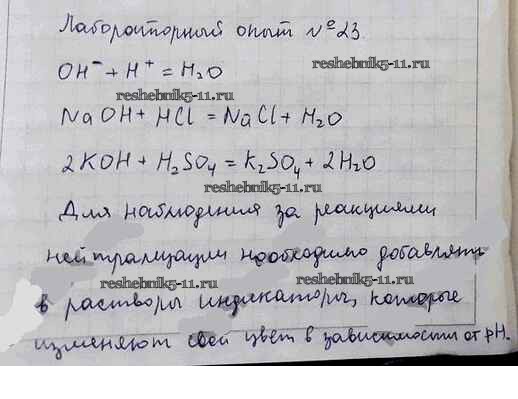 Лабораторный опыт №23.
OH⁻ + H⁺ = H₂O
reshebnik5-11.ru
reshebnik5-11.ru
NaOH + HCl = NaCl + H₂O
2KOH + H₂SO₄ = K₂SO₄ + 2H₂O
reshebnik5-11.ru
Для наблюдения за реакциями
нейтрализации необходимо добавлять
reshebnik5-11.ru
reshebnik5-11.ru
в растворы индикаторы, которые
изменяют свой цвет в зависимости от pH.